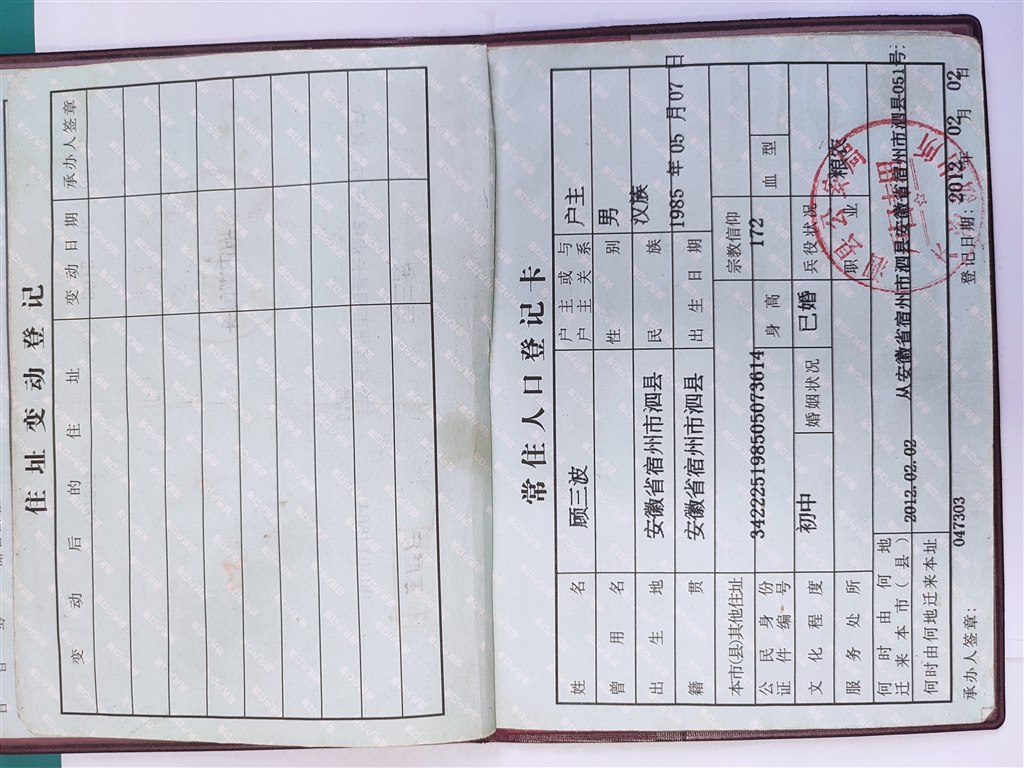 住址变动登记
变动后的住址 变动日期 承办人签章
常住人口登记卡
姓名 顾三波 户主或与户主关系 户主
曾用名 性别 男
出生地 安徽省宿州市泗县 民族 汉族
籍贯 安徽省宿州市泗县 出生日期 1985年05月07日
本市(县)其他住址 宗教信仰
公民身份证件编号 342225198505073614 身高 172 血型
文化程度 初中 婚姻状况 已婚 兵役状况
服务处所 职业 粮农
何时由何地迁来本市(县) 2012.02.02 从安徽省宿州市泗县安徽省宿州市泗县051号:
何时由何地迁来本址
047303
承办人签章: 登记日期: 2012年02月02日
泗县公安局
户口专用